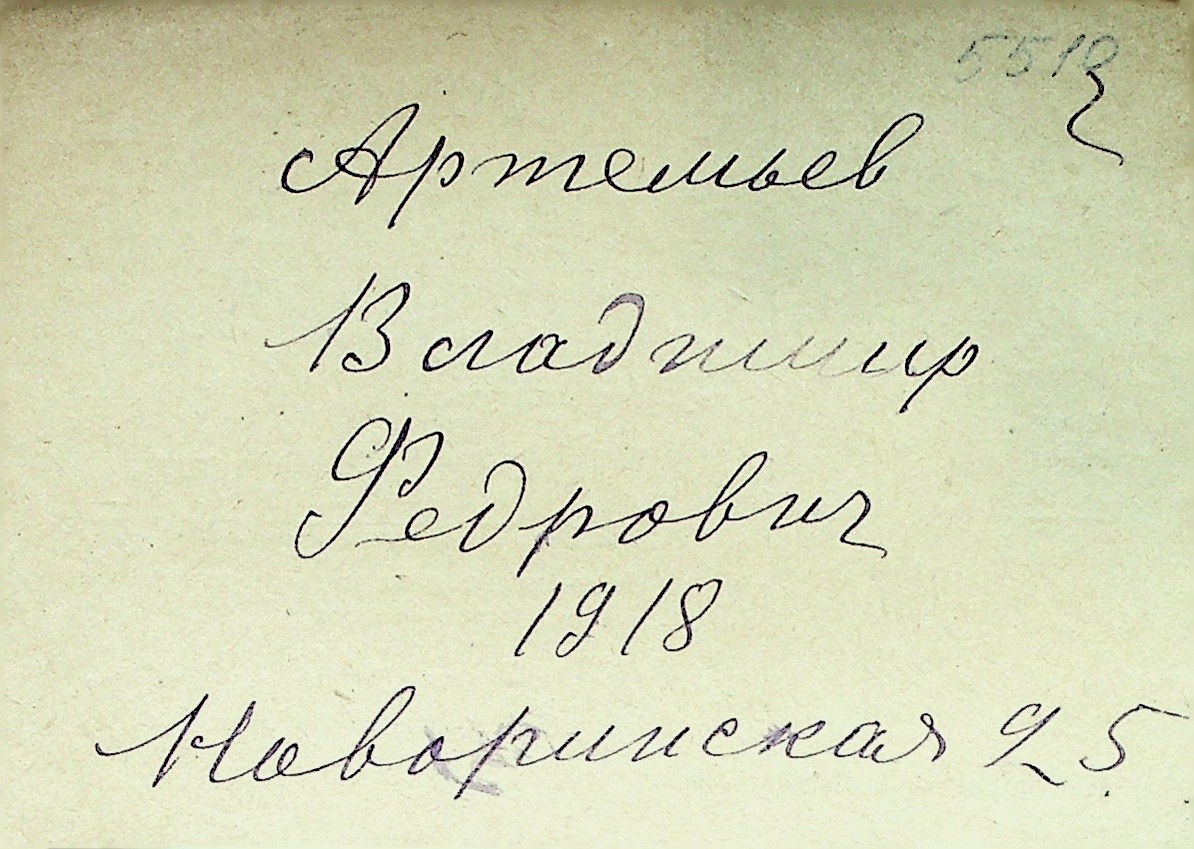 5518
Артемьев
Владимир
Федрович
1918
Новоринская 25